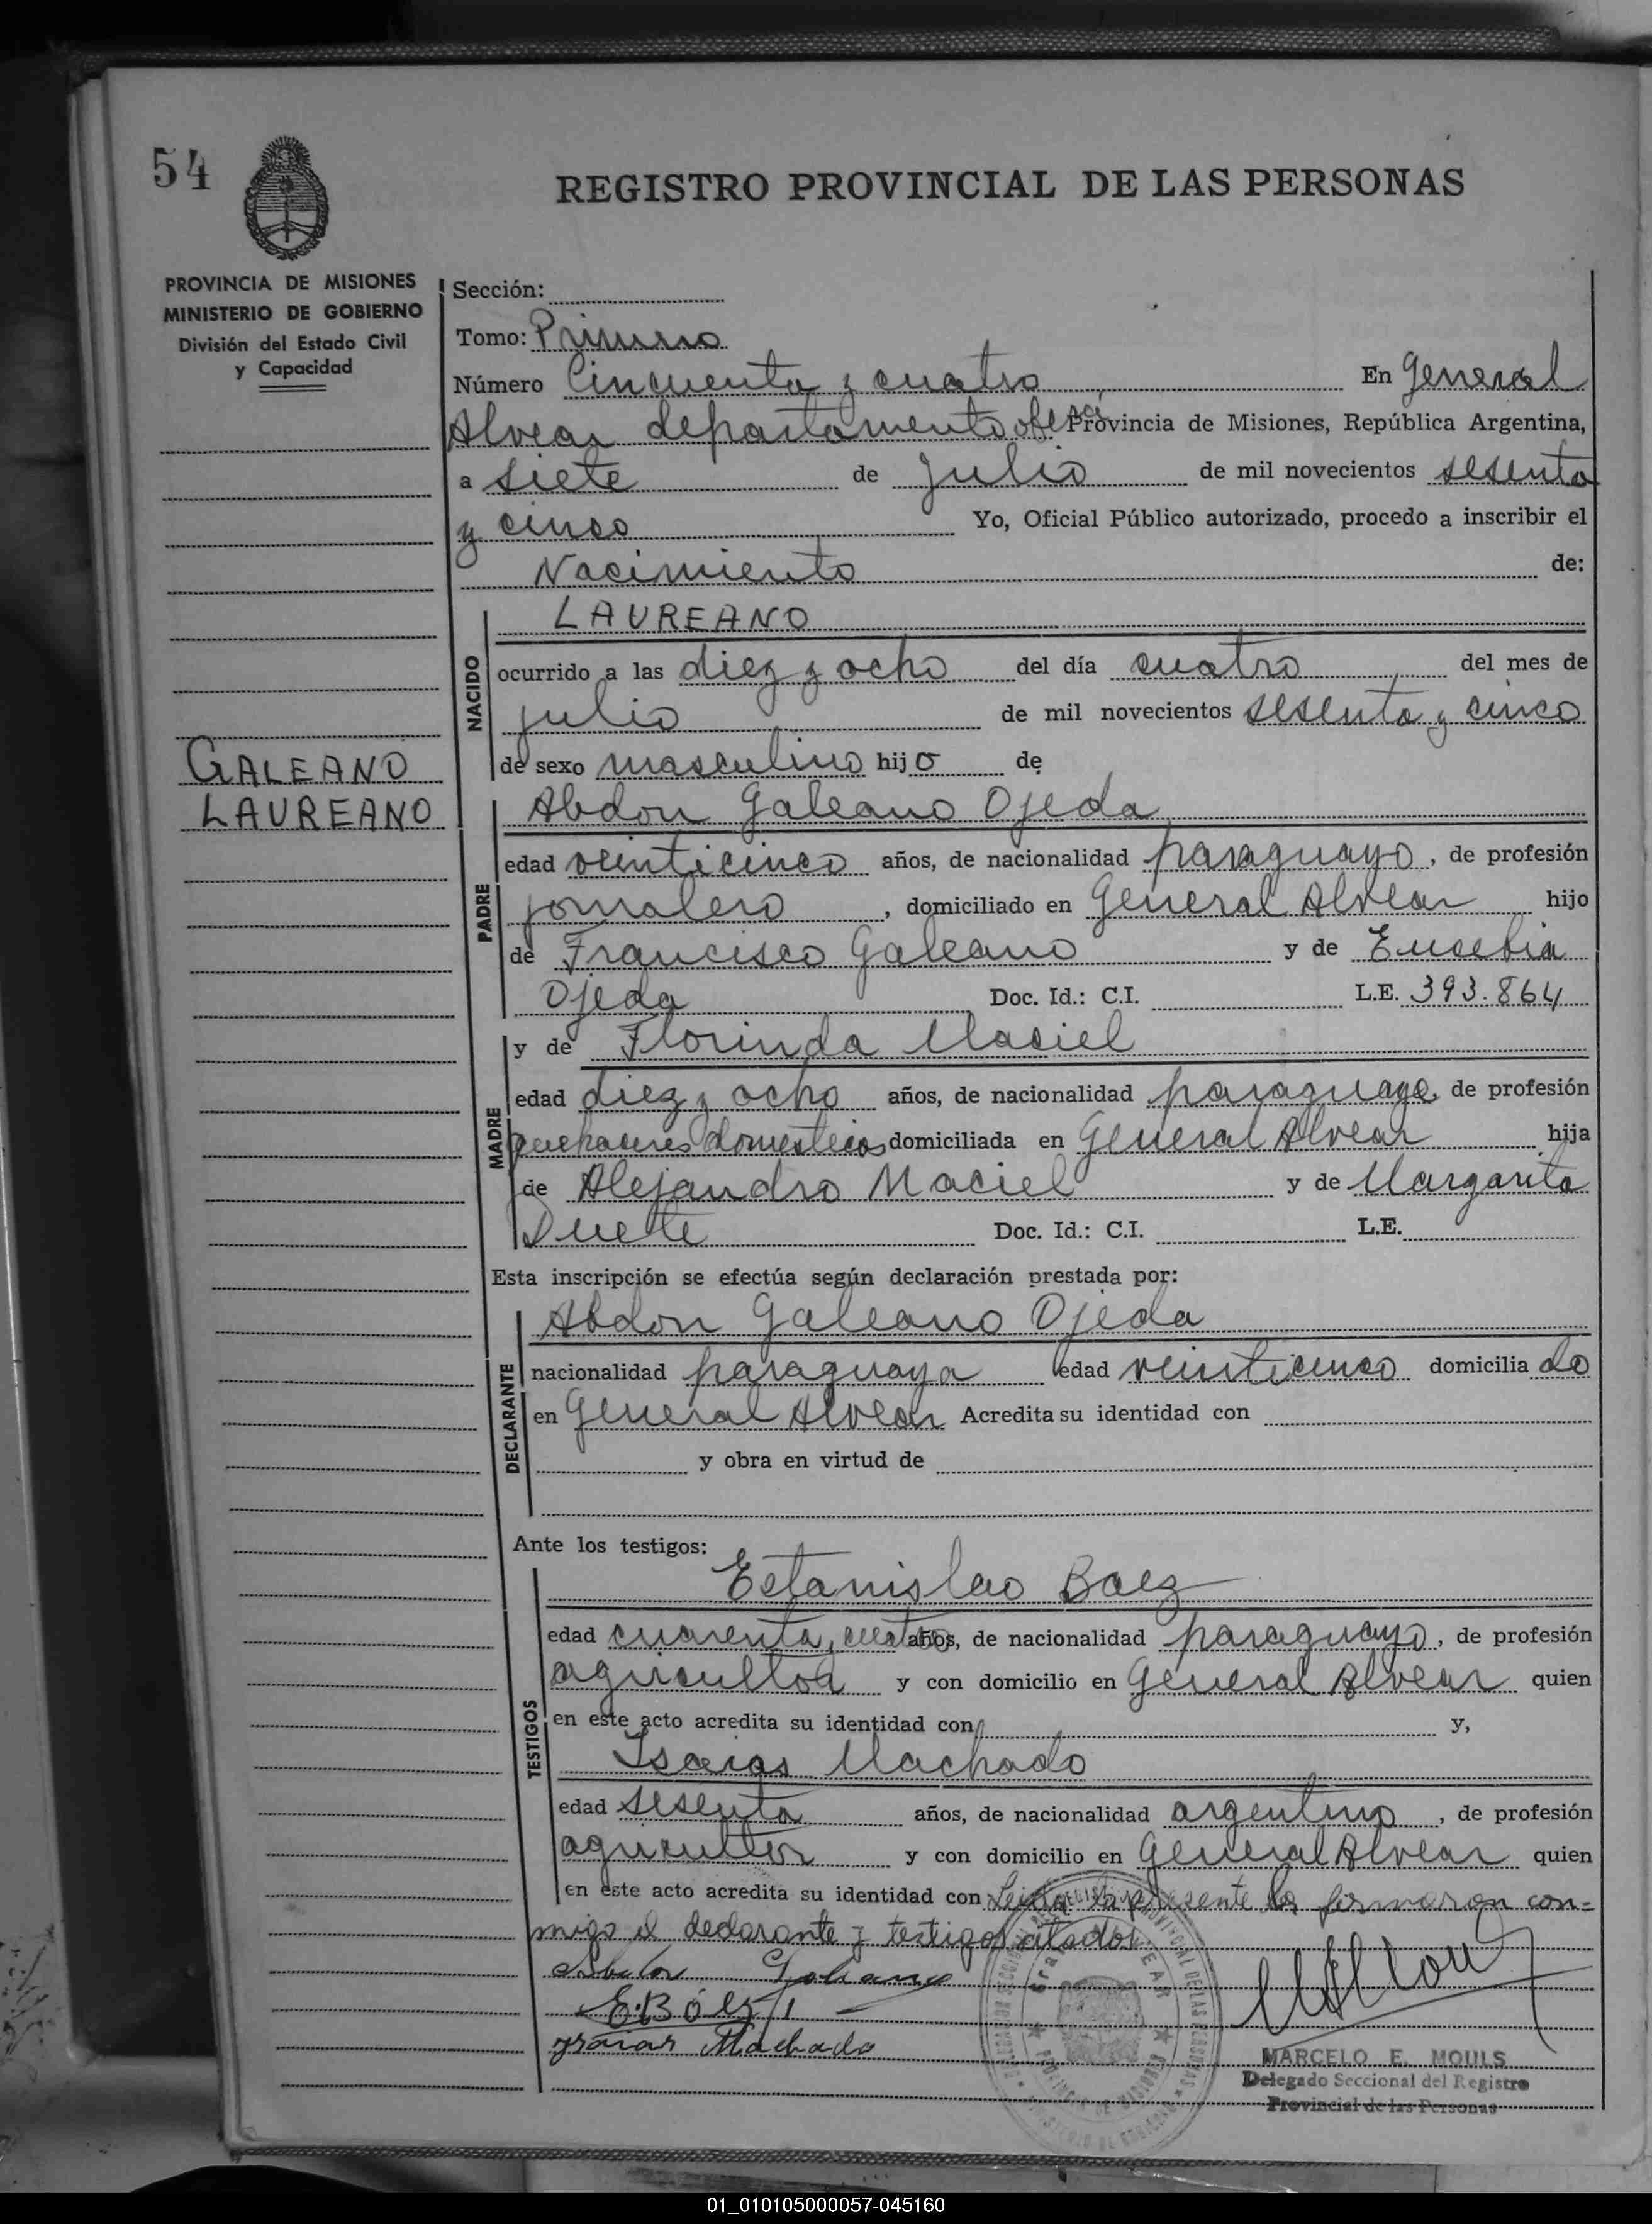 54
REGISTRO PROVINCIAL DE LAS PERSONAS
PROVINCIA DE MISIONES
MINISTERIO DE GOBIERNO
División del Estado Civil
y Capacidad
Sección:
Tomo: Primero
Número Cincuenta y cuatro En General
Alvear departamento Provincia de Misiones, República Argentina,
a siete de julio de mil novecientos sesenta
y cinco Yo, Oficial Público autorizado, procedo a inscribir el
Nacimiento de:
NACIDO
LAUREANO
ocurrido a las diez y ocho del día cuatro del mes de
julio de mil novecientos sesenta y cinco
de sexo masculino hijo de
GALEANO
LAUREANO
PADRE
Abdon Galeano Ojeda
edad veinticinco años, de nacionalidad paraguayo, de profesión
jornalero, domiciliado en General Alvear hijo
de Francisco Galeano y de Eusebia
Ojeda Doc. Id.: C.I. L.E. 393.864
MADRE
y de Florinda Maciel
edad diez y ocho años, de nacionalidad paraguaya, de profesión
quehaceres domesticos domiciliada en General Alvear hija
de Alejandro Maciel y de Margarita
Duete Doc. Id.: C.I. L.E.
Esta inscripción se efectúa según declaración prestada por:
DECLARANTE
Abdon Galeano Ojeda
nacionalidad paraguaya edad veinticinco domiciliado
en General Alvear Acredita su identidad con
y obra en virtud de
Ante los testigos:
TESTIGOS
Estanislao Baez
edad cuarenta y cuatro años, de nacionalidad paraguayo, de profesión
agricultor y con domicilio en General Alvear quien
en este acto acredita su identidad con y,
Isaias Machado
edad sesenta años, de nacionalidad argentino, de profesión
agricultor y con domicilio en General Alvear quien
en este acto acredita su identidad con Leida la presente la firmaron con=
migo el declarante y testigos citados
Abdon Galeano
E. Báez
Isaias Machado
MARCELO E. MOULS
Delegado Seccional del Registro
Provincial de las Personas
01_010105000057-045160